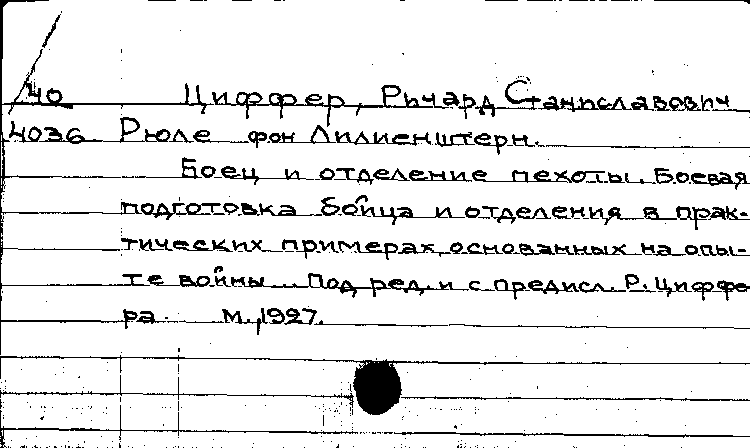 40 Циффер, Ричард Станиславович
4036 Рюле фон Лилиенштерн.
Боец и отделение пехоты. Боевая
подготовка бойца и отделения в прак-
тических примерах, основанных на опы-
те войны... Под ред. и с предисл. Р. Циффе
ра. М., 1927.